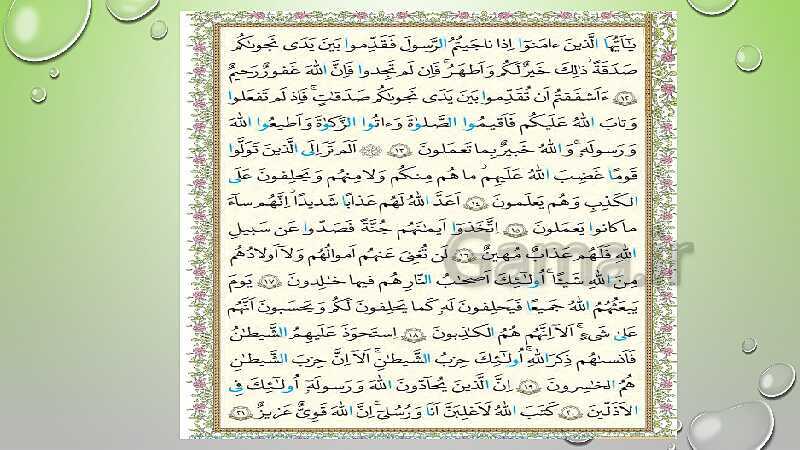 يا أَيُّهَا الَّذينَ ءامَنوا إِذا ناجَيتُمُ الرَّسولَ فَقَدِّموا بَينَ يَدَى نَجواكُم
صَدَقَةً ذٰلِكَ خَيرٌ لَكُم وَأَطهَرُ فَإِن لَم تَجِدوا فَإِنَّ اللَّهَ غَفورٌ رَحيمٌ
﴿١٢﴾ ءَأَشفَقتُم أَن تُقَدِّموا بَينَ يَدَى نَجواكُم صَدَقاتٍ فَإِذ لَم تَفعَلوا
وَتابَ اللَّهُ عَلَيكُم فَأَقيمُوا الصَّلوٰةَ وَءاتُوا الزَّكوٰةَ وَأَطيعُوا اللَّهَ
وَرَسولَهُ وَاللَّهُ خَبيرٌ بِما تَعمَلونَ ﴿١٣﴾ أَلَم تَرَ إِلَى الَّذينَ تَوَلَّوا
قَومًا غَضِبَ اللَّهُ عَلَيهِم ما هُم مِنكُم وَلا مِنهُم وَيَحلِفونَ عَلَى
الكَذِبِ وَهُم يَعلَمونَ ﴿١٤﴾ أَعَدَّ اللَّهُ لَهُم عَذابًا شَديدًا إِنَّهُم ساءَ
ما كانوا يَعمَلونَ ﴿١٥﴾ اِتَّخَذوا أَيمانَهُم جُنَّةً فَصَدّوا عَن سَبيلِ
اللَّهِ فَلَهُم عَذابٌ مُهينٌ ﴿١٦﴾ لَن تُغنِىَ عَنهُم أَموالُهُم وَلا أَولادُهُم
مِنَ اللَّهِ شَيئًا أُولٰئِكَ أَصحابُ النّارِ هُم فيها خالِدونَ ﴿١٧﴾ يَومَ
يَبعَثُهُمُ اللَّهُ جَميعًا فَيَحلِفونَ لَهُ كَما يَحلِفونَ لَكُم وَيَحسَبونَ أَنَّهُم
عَلىٰ شَىءٍ أَلا إِنَّهُم هُمُ الكاذِبونَ ﴿١٨﴾ اِستَحوَذَ عَلَيهِمُ الشَّيطانُ
فَأَنساهُم ذِكرَ اللَّهِ أُولٰئِكَ حِزبُ الشَّيطانِ أَلا إِنَّ حِزبَ الشَّيطانِ
هُمُ الخاسِرونَ ﴿١٩﴾ إِنَّ الَّذينَ يُحادّونَ اللَّهَ وَرَسولَهُ أُولٰئِكَ فِى
الأَذَلّينَ ﴿٢٠﴾ كَتَبَ اللَّهُ لَأَغلِبَنَّ أَنا وَرُسُلى إِنَّ اللَّهَ قَوِىٌّ عَزيزٌ ﴿٢١﴾
Gama.ir